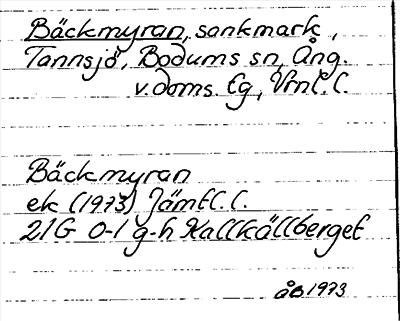 Bäckmyran, sankmark,
Tannsjö, Bodums sn, Ång.
v.doms. Eg, Vrnl.l.
Bäckmyran
ek (1973) Jämtl.l.
21G 0-1 g-h Kallkällberget
åo 1973